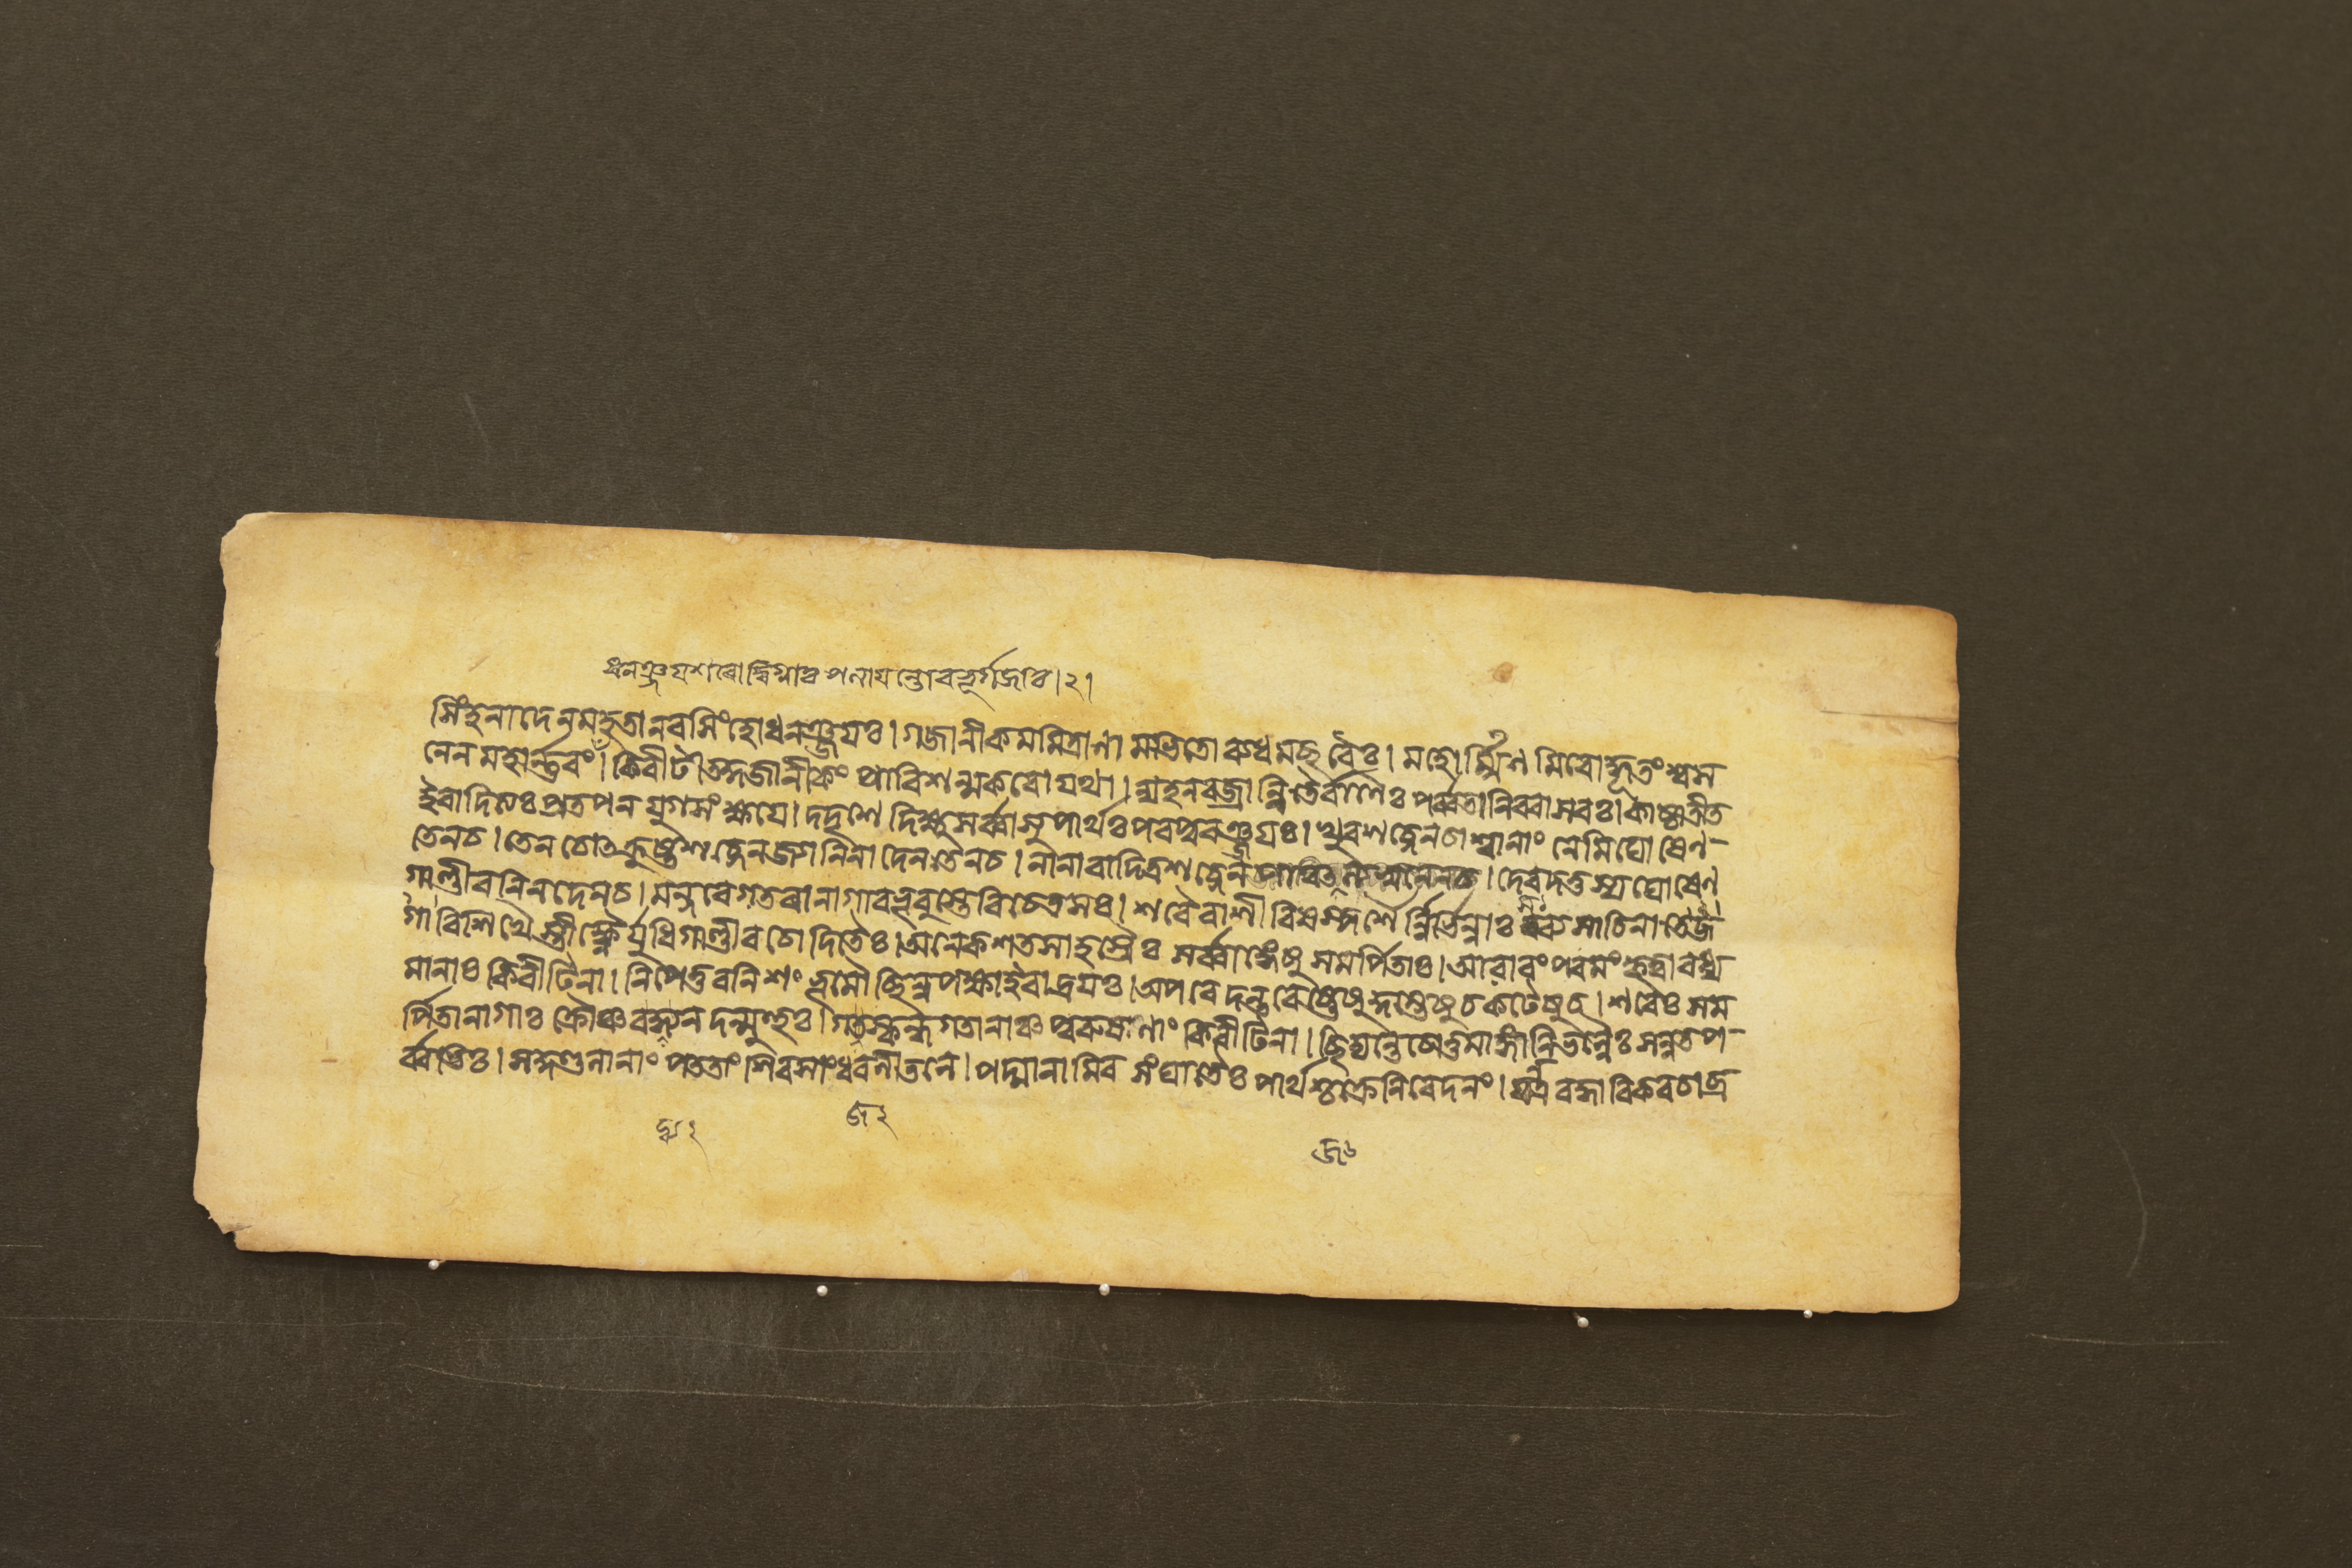 ধনঞ্জয়শরোদ্বিগ্নাব পলায়ন্তোবভূর্গজাব।২।
সিংহনাদেনমহতানরসিংহোধনঞ্জয়ঃ। গজানীকমমিত্রাণামভিতোব্যধমচ্ছরৈঃ। মহোর্ম্মিণমিবোদ্ধূতংশ্বস
নেনমহার্ণবং। কিরীটীতদ্গজানীকং প্রাবিশন্মকরোযথা। ন্যহনবজ্রান্নিভৈর্বাণৈঃ পর্ব্বতানিববাসবঃ। কাষ্ঠাতীত
ইবাদিত্যঃ প্রতপন যুগসংক্ষয়ে। দদৃশেদিক্ষুসর্ব্বাসুপার্থঃ পরপুরঞ্জয়ঃ। খুরশব্দেনচাশ্বানাং নেমিঘোষেণ-
তেনচ। তেনচোৎক্রুষ্টশব্দেনজ্যানিনাদেনতেনচ। নানাবাদিত্রশব্দেন দেবদত্তস্যঘোষেণ
গাণ্ডীবনিনদেনচ। মন্দবেগতরানাগাবভূবুস্তেবিচেতসঃ। শরৈরাশীবিষস্পর্শৈর্ন্নির্ভিন্নাঃ সব্যসাচিনা
গাবিশিখৈস্তীক্ষ্ণৈর্যুধিগাণ্ডীবচোদিতৈঃ। অনেকশতসাহস্রৈঃ সর্ব্বাঙ্গেষুসমর্পিতাঃ। আরাবংপরমংকৃত্বাবধ্য
মানাঃ কিরীটিনা। নিপেতুরনিশং ভূমৌছিন্নপক্ষাইবাদ্রয়ঃ। অপরেদন্তবেষ্টেষুকুম্ভেষুচকটেষুচ। শরৈঃ সম
র্পিতানাগাঃ ক্রৌঞ্চবদ্ব্যনদন্মুহুঃ। গজস্কন্ধগতানাঞ্চপুরুষাণাং কিরীটিনা। ছিদ্যন্তেচোত্তমাঙ্গানিভল্লৈঃ সন্নতপ-
র্ব্বভিঃ। সকুণ্ডলানাং পততাং শিরসাংধরণীতলে। পদ্মানামিব সংঘাতৈঃ পার্থশ্চক্রেনিবেদনং। যন্ত্রবদ্ধাবিকবচাব্র